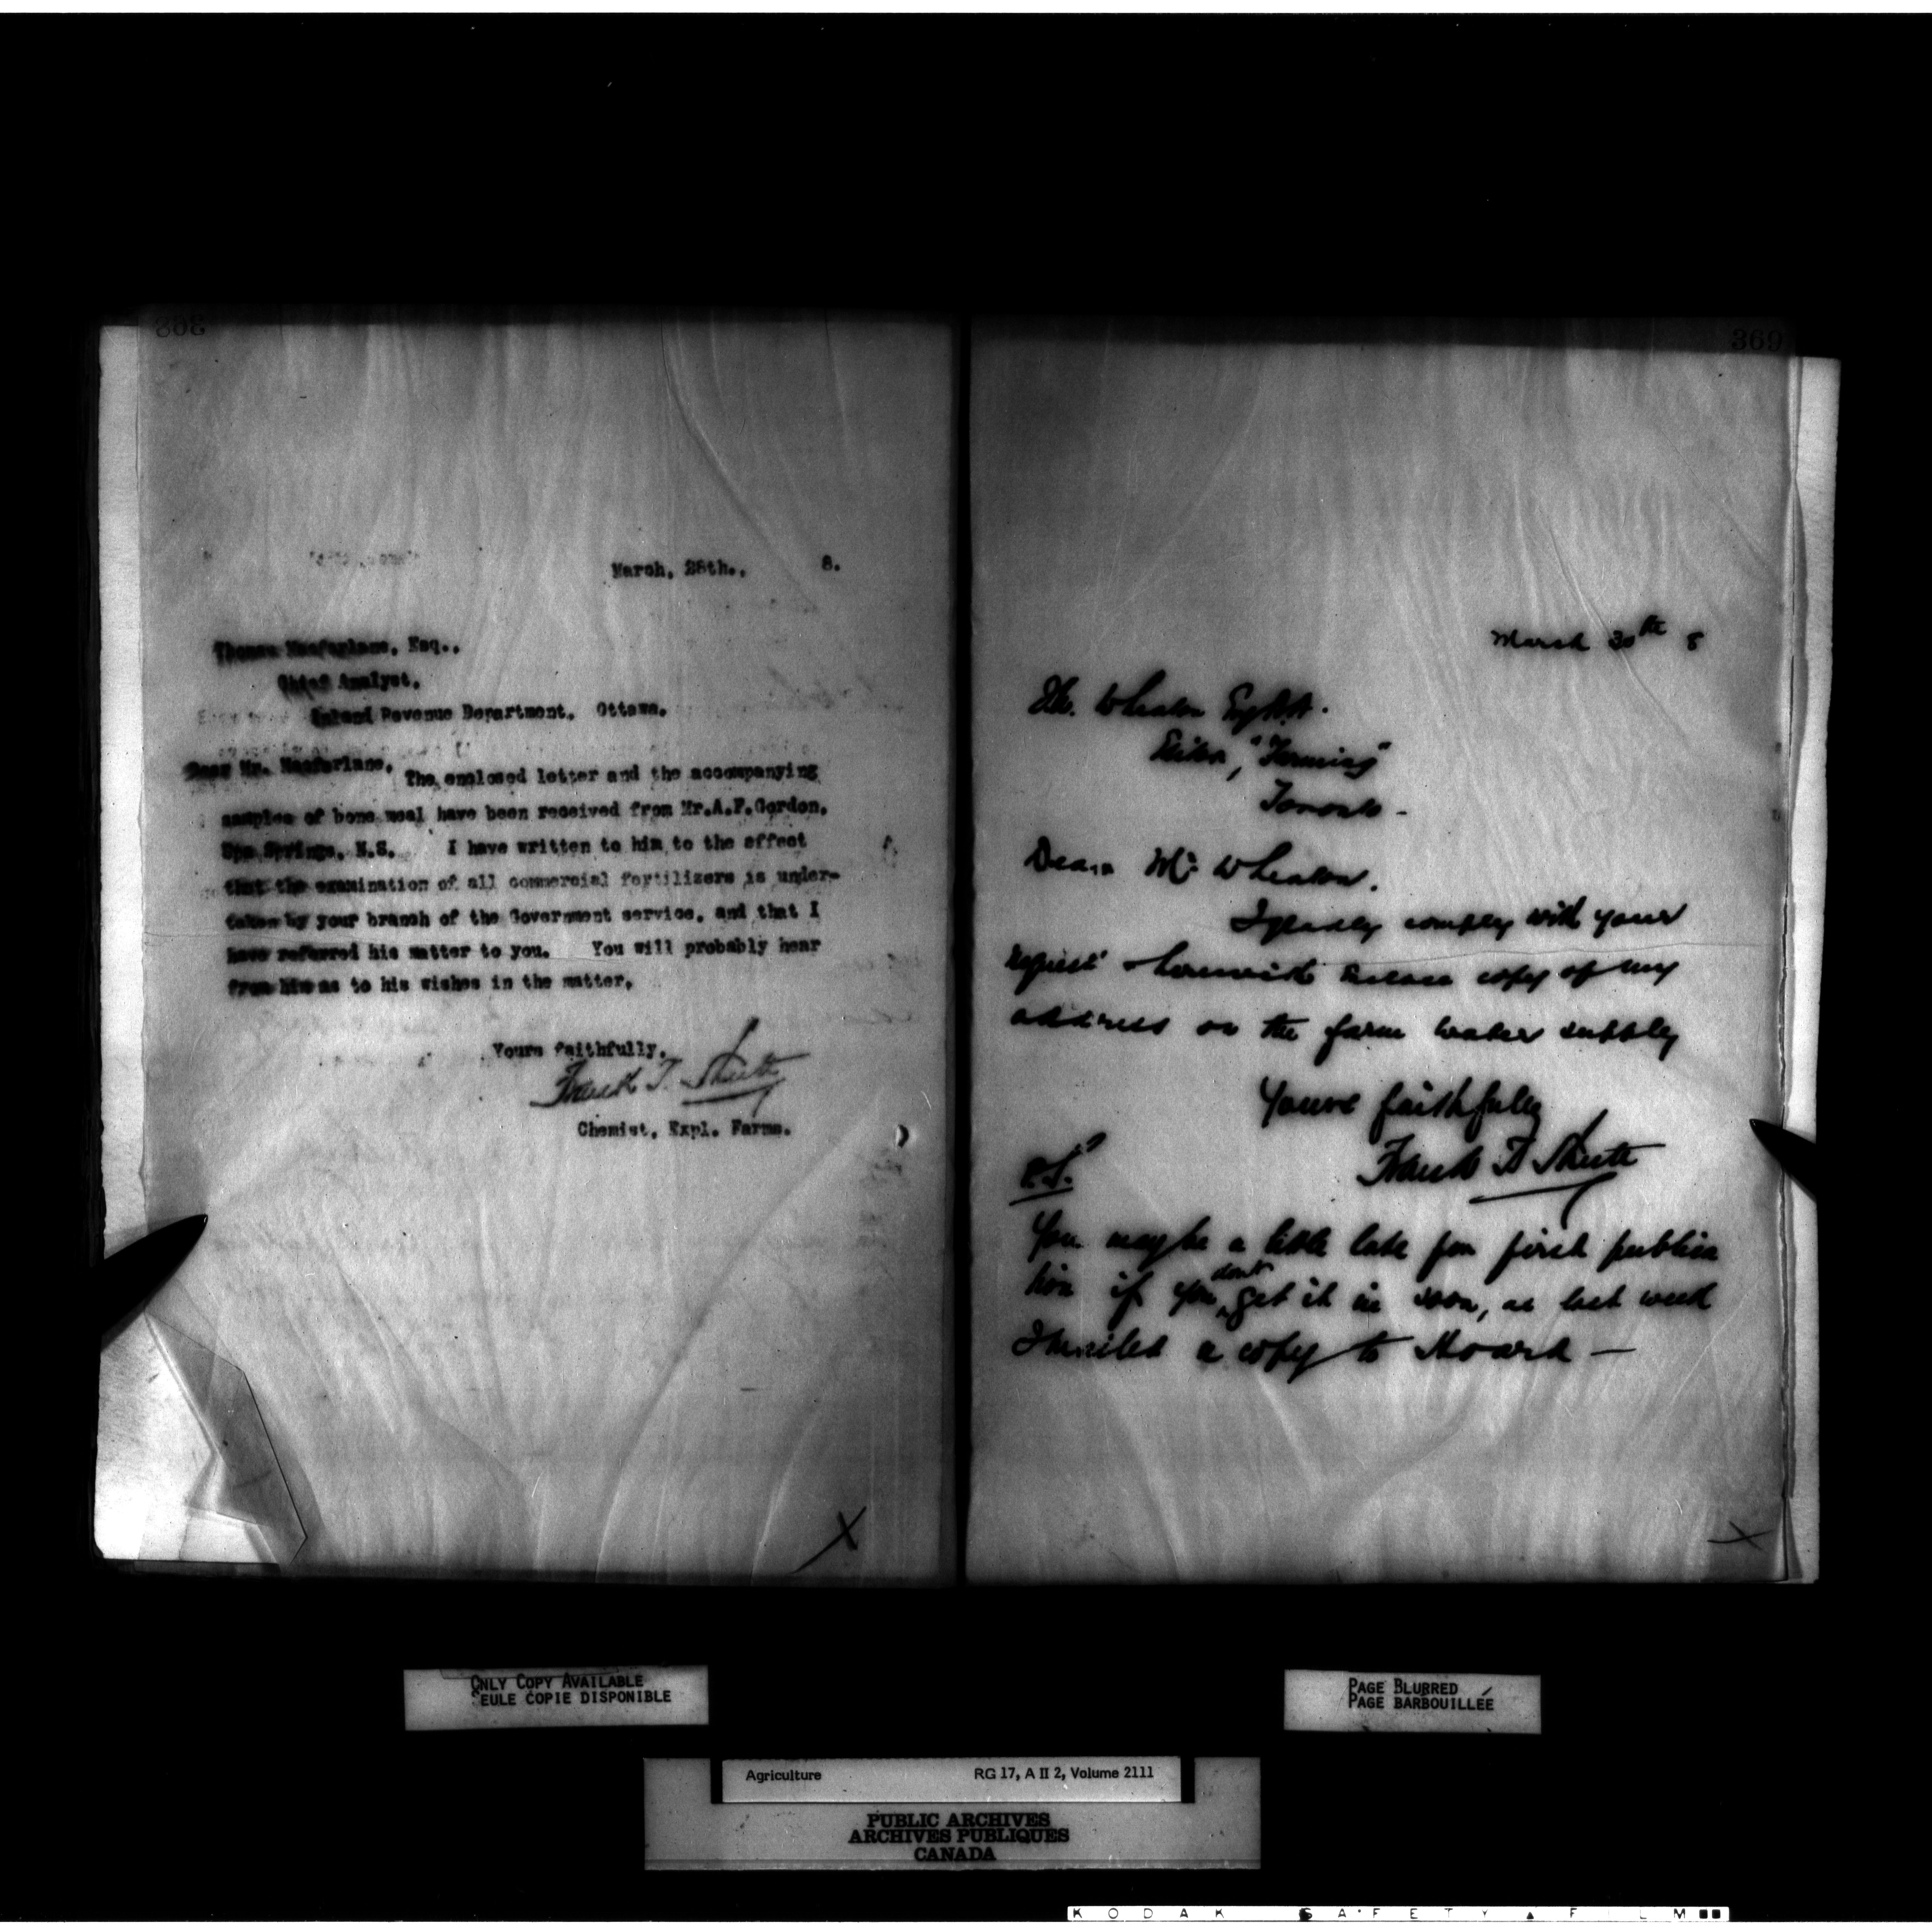 368
March, 28th., 8.
Thomas Macfarlane, Esq.,
Chief Analyst,
Inland Revenue Department, Ottawa.
Dear Mr. Macfarlane,
The enclosed letter and the accompanying
samples of bone meal have been received from Mr.A.F.Gordon,
Spa Springs, N.S. I have written to him to the effect
that the examination of all commercial fertilizers is under-
taken by your branch of the Government service, and that I
have referred his matter to you. You will probably hear
from him as to his wishes in the matter.
Yours faithfully,
Frank T. Shutt
Chemist, Expl. Farms.
369
March 30th 8
Wheaton
Editor, "Farming"
Toronto -
Dear Mr. Wheaton.
I gladly comply with your
request & herewith enclose copy of my
address on the farm water supply
Yours faithfully
Frank T Shutt
P.S.
You may be a little late for first publica
tion if you don't get it in soon, as last week
I mailed a copy to Hoard —
ONLY COPY AVAILABLE
SEULE COPIE DISPONIBLE
PAGE BLURRED
PAGE BARBOUILLÉE
Agriculture RG 17, A II 2, Volume 2111
PUBLIC ARCHIVES
ARCHIVES PUBLIQUES
CANADA
KODAK SAFETY FILM